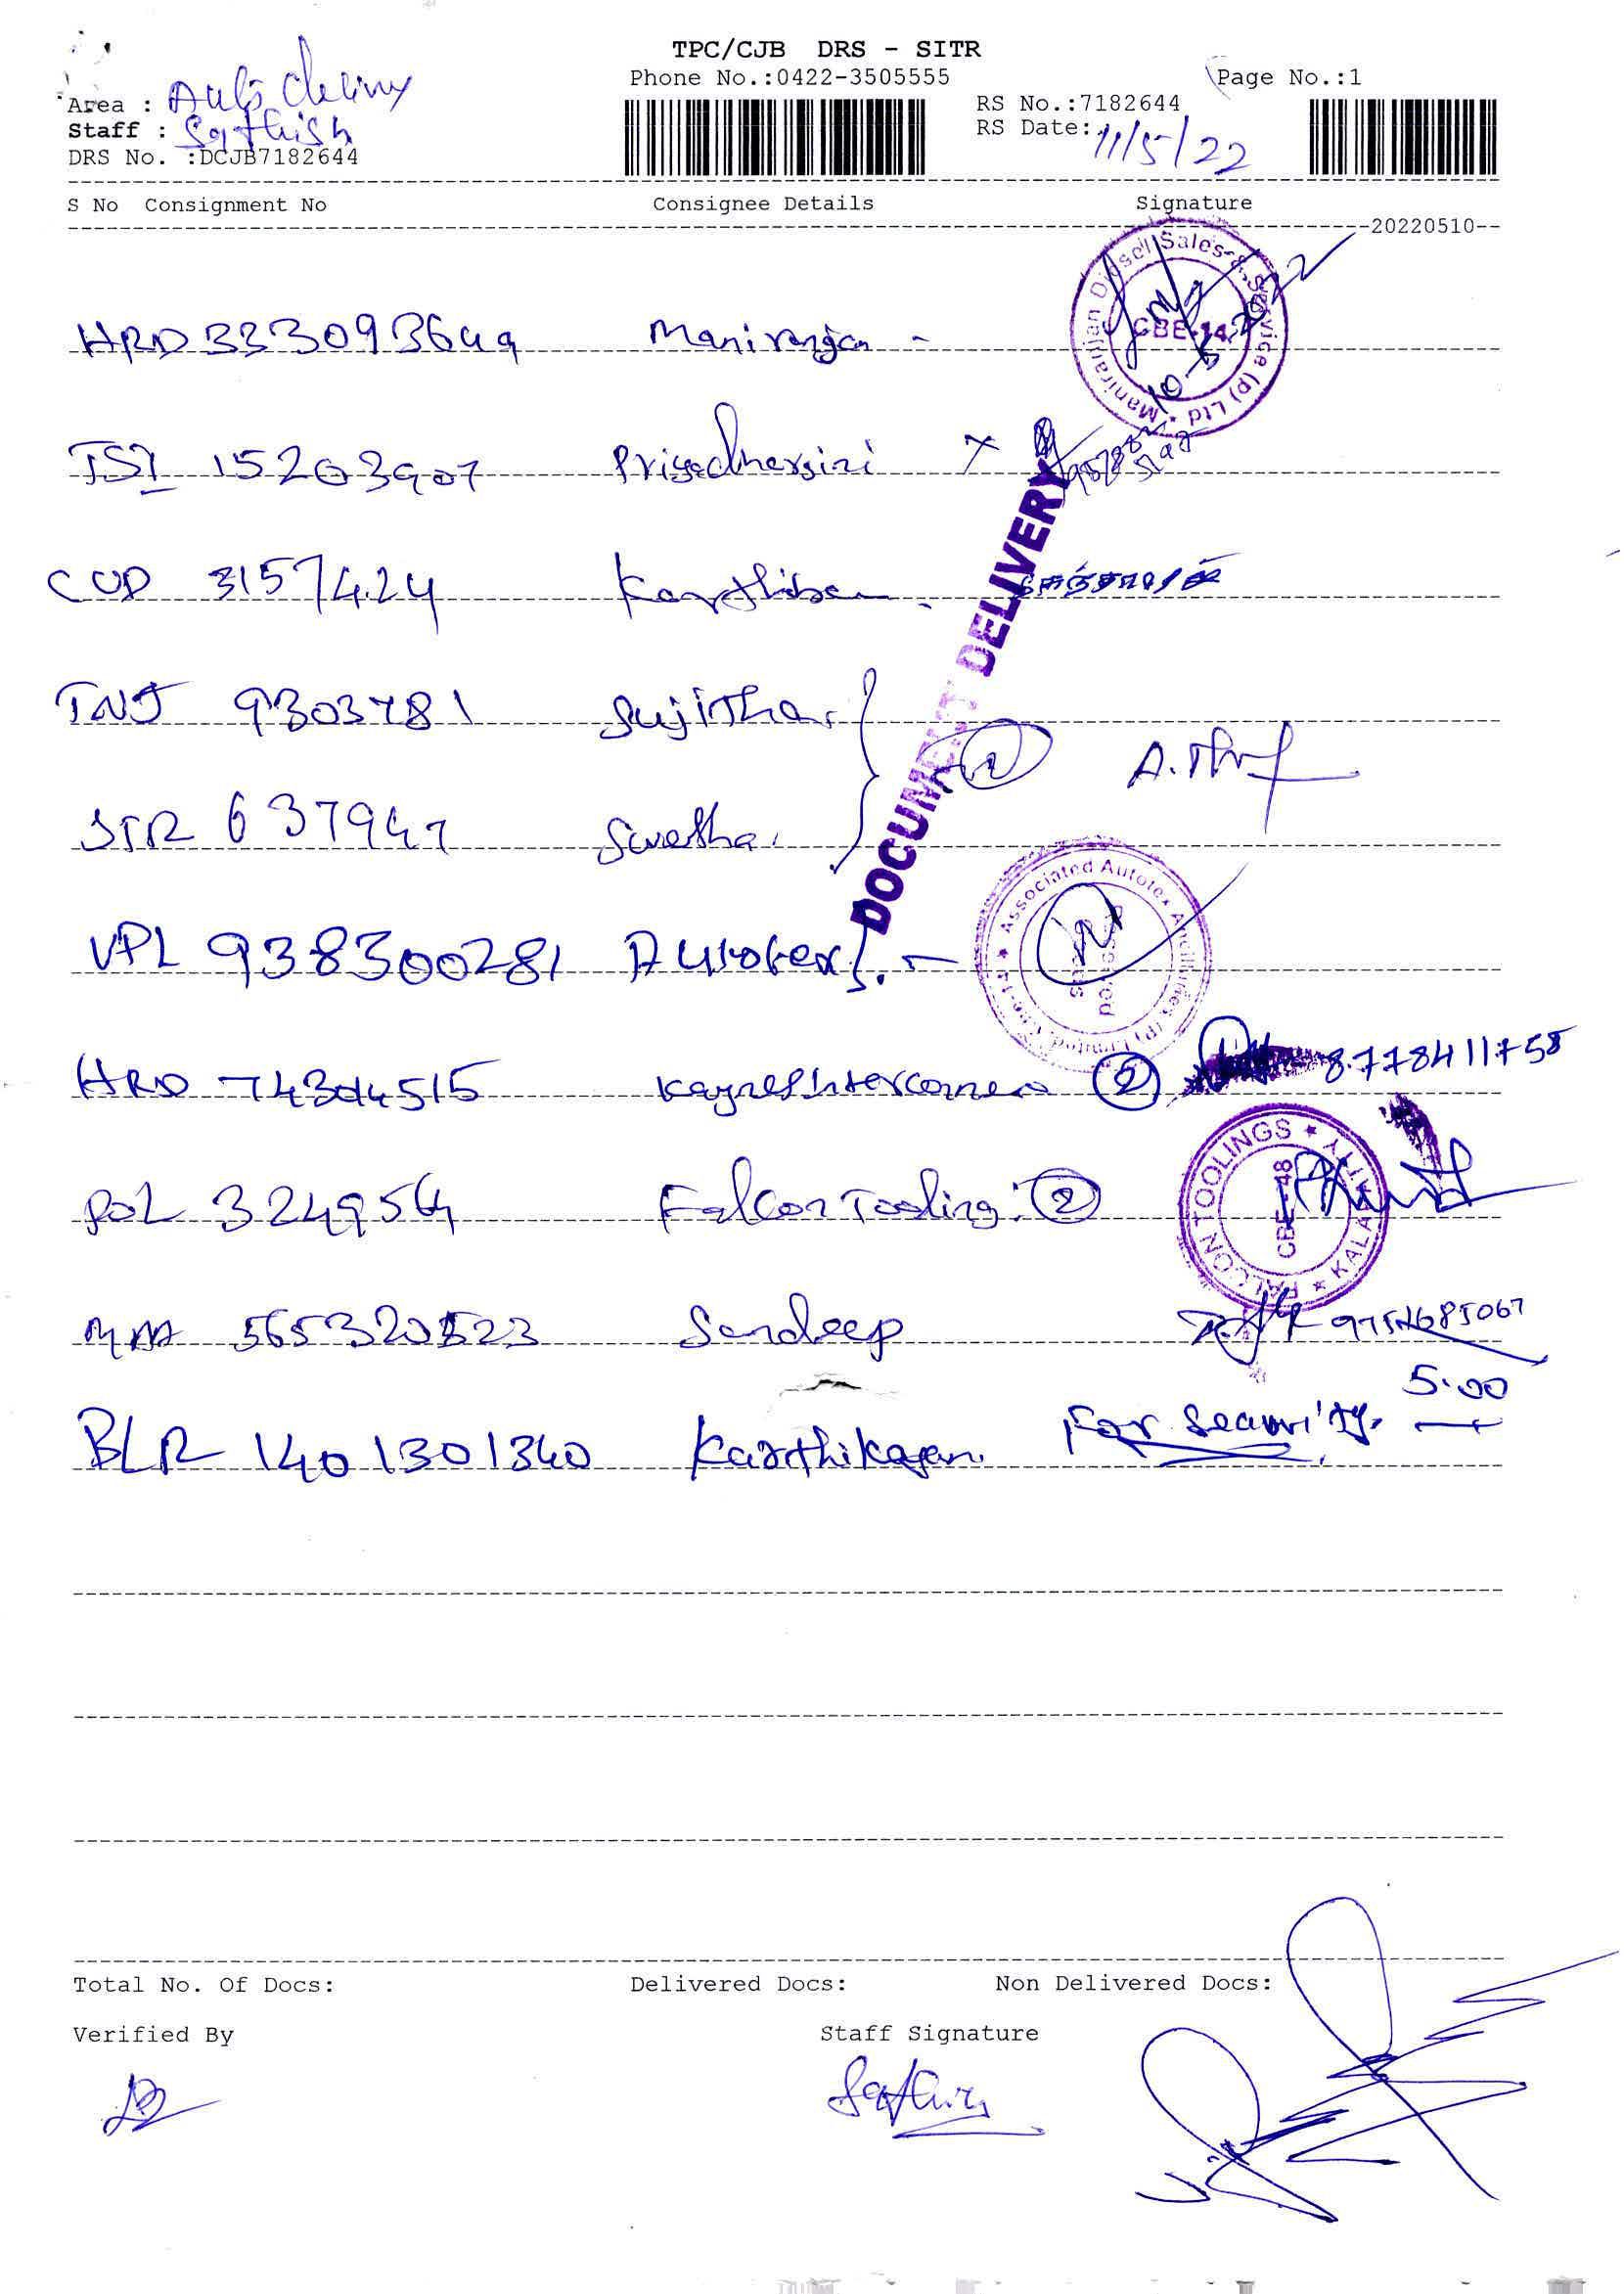 TPC/CJB DRS - SITR
Phone No.:0422-3505555
Page No.:1
Area : Auto
Staff : Sathish
DRS No. :DCJB7182644
RS No.:7182644
RS Date: 11/5/22
S No Consignment No Consignee Details Signature
20220510
HRD 333093649 Maniranjan -
Maniranjan Diesel Sales & Service (p) Ltd
CBE-14
10-5-2022
JSI 15203907 Priyadharsini X
COD 3157424 Karthiban
DOCUMENT DELIVERY
TNJ 9303781 Sujitha
STR 637947 Swetha
VPL 938300281 Autotex
Associated Autotex Ancillaries (P) Limited
HRD 74304515 (2) 8778411758
POL 3249564 Falcon Tooling (2)
FALCON TOOLINGS ★ KALAPATTY ★
CBE-48
MAA 565320523 Sandeep
BLR 1401301340 Karthikeyan For Security 5.00
Total No. Of Docs: Delivered Docs: Non Delivered Docs:
Verified By Staff Signature